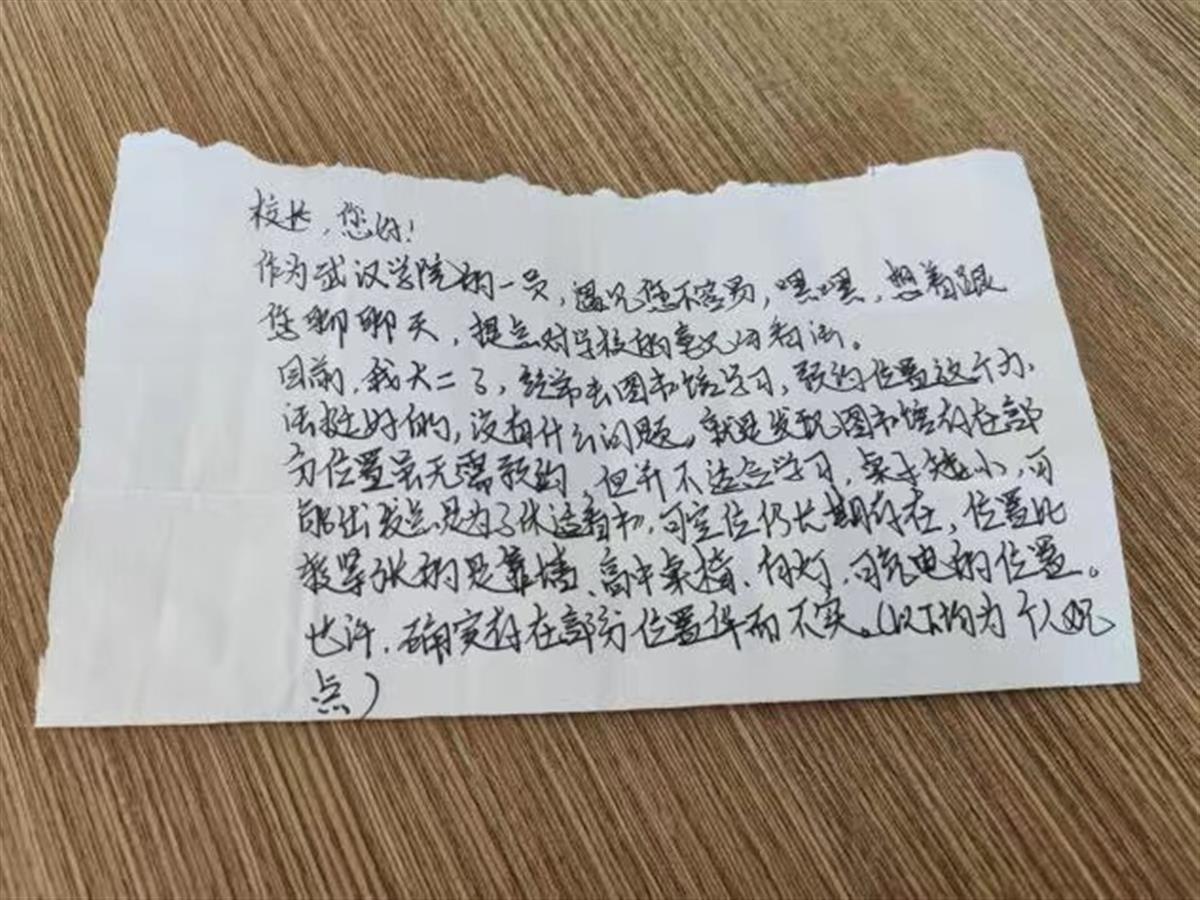 校长，您好！
作为武汉学院的一员，遇见您不容易，嘿嘿，想着跟
您聊聊天，提点对学校的意见何看法。
目前，我大二了，经常去图书馆学习，预约位置这个办
法挺好的，没有什么问题，就是发现图书馆存在部
分位置虽无需预约，但并不适合学习，桌子矮小，可
能出发点是为了休适看书，可空位仍长期存在，位置比
较紧张的是靠墙、高中桌椅、有灯、可充电的位置。
也许，确实存在部分位置华而不实。（以下均为个人观
点）